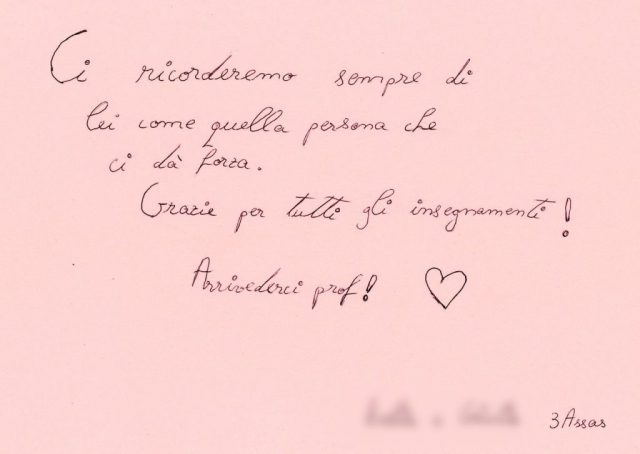 Ci ricorderemo sempre di
lei come quella persona che
ci dà forza.
Grazie per tutti gli insegnamenti!
Arrivederci prof!
3Assas